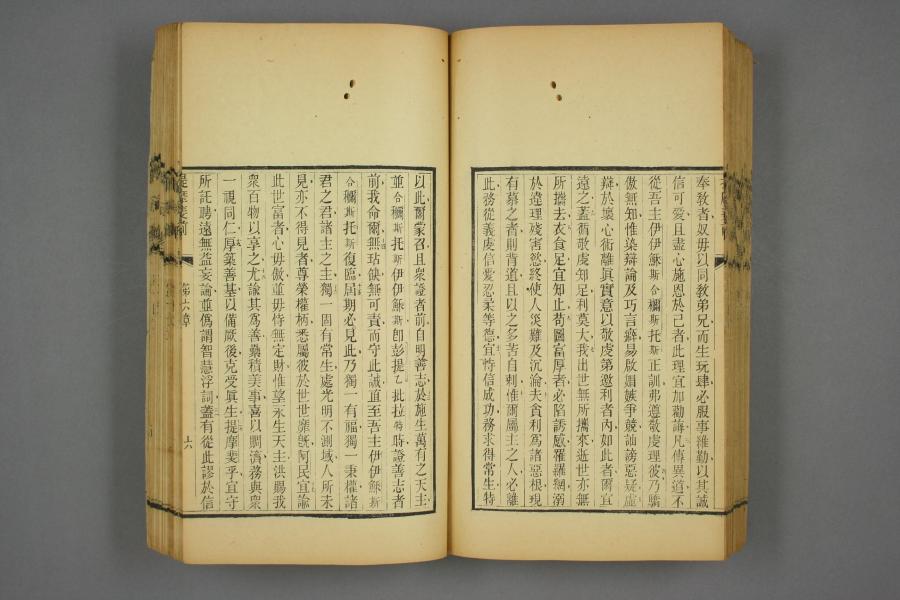 奉教者奴毋以同教弟兄而生玩肆必服事維勤以其誠
信可愛且盡心施恩於己者此理宜加勸誨凡傳異道不
從吾主伊伊穌斯合䄡斯托斯正訓弗遵敬虔理彼乃驕
傲無知惟染辯論及巧言癖易啟媢嫉爭競訕謗惡疑虛
辯於壞心術離真實意以敬虔第邀利者內如此者爾宜
遠之蓋循敬虔知足利莫大我出世無所攜來逝世亦無
所攜去衣食足宜知止苟圖富厚者必陷誘惑罹羅網溺
於違理殘害慾終使人災難及沉淪夫貪利爲諸惡根現
有慕之者則背道且以之多苦自刺惟爾屬主之人必離
此務從義虔信愛忍柔等德宜恃信成功務求得常生特
以此爾蒙召且衆證者前自明善志於施生萬有之天主
並合䄡斯托斯伊伊穌斯卽彭提乙批拉特時證善志者
前我命爾無玷缺無可責而守此誡直至吾主伊伊穌斯
合䄡斯托斯復臨屆期必見此乃獨一有福獨一秉權諸
君之君諸主之主獨一固有常生處光明不測域人所未
見亦不得見者尊榮權柄悉屬彼於世世靡旣阿民宜諭
此世富者心毋傲並毋恃無定財惟望永生天主洪賜我
衆百物以享之尤諭其爲善纍積美事喜以賙濟務與衆
一視同仁厚築善基以備厥後克受眞生提摩斐乎宜守
所託聘遠無益妄論並僞謂智慧浮詞蓋有從此謬於信
第六章